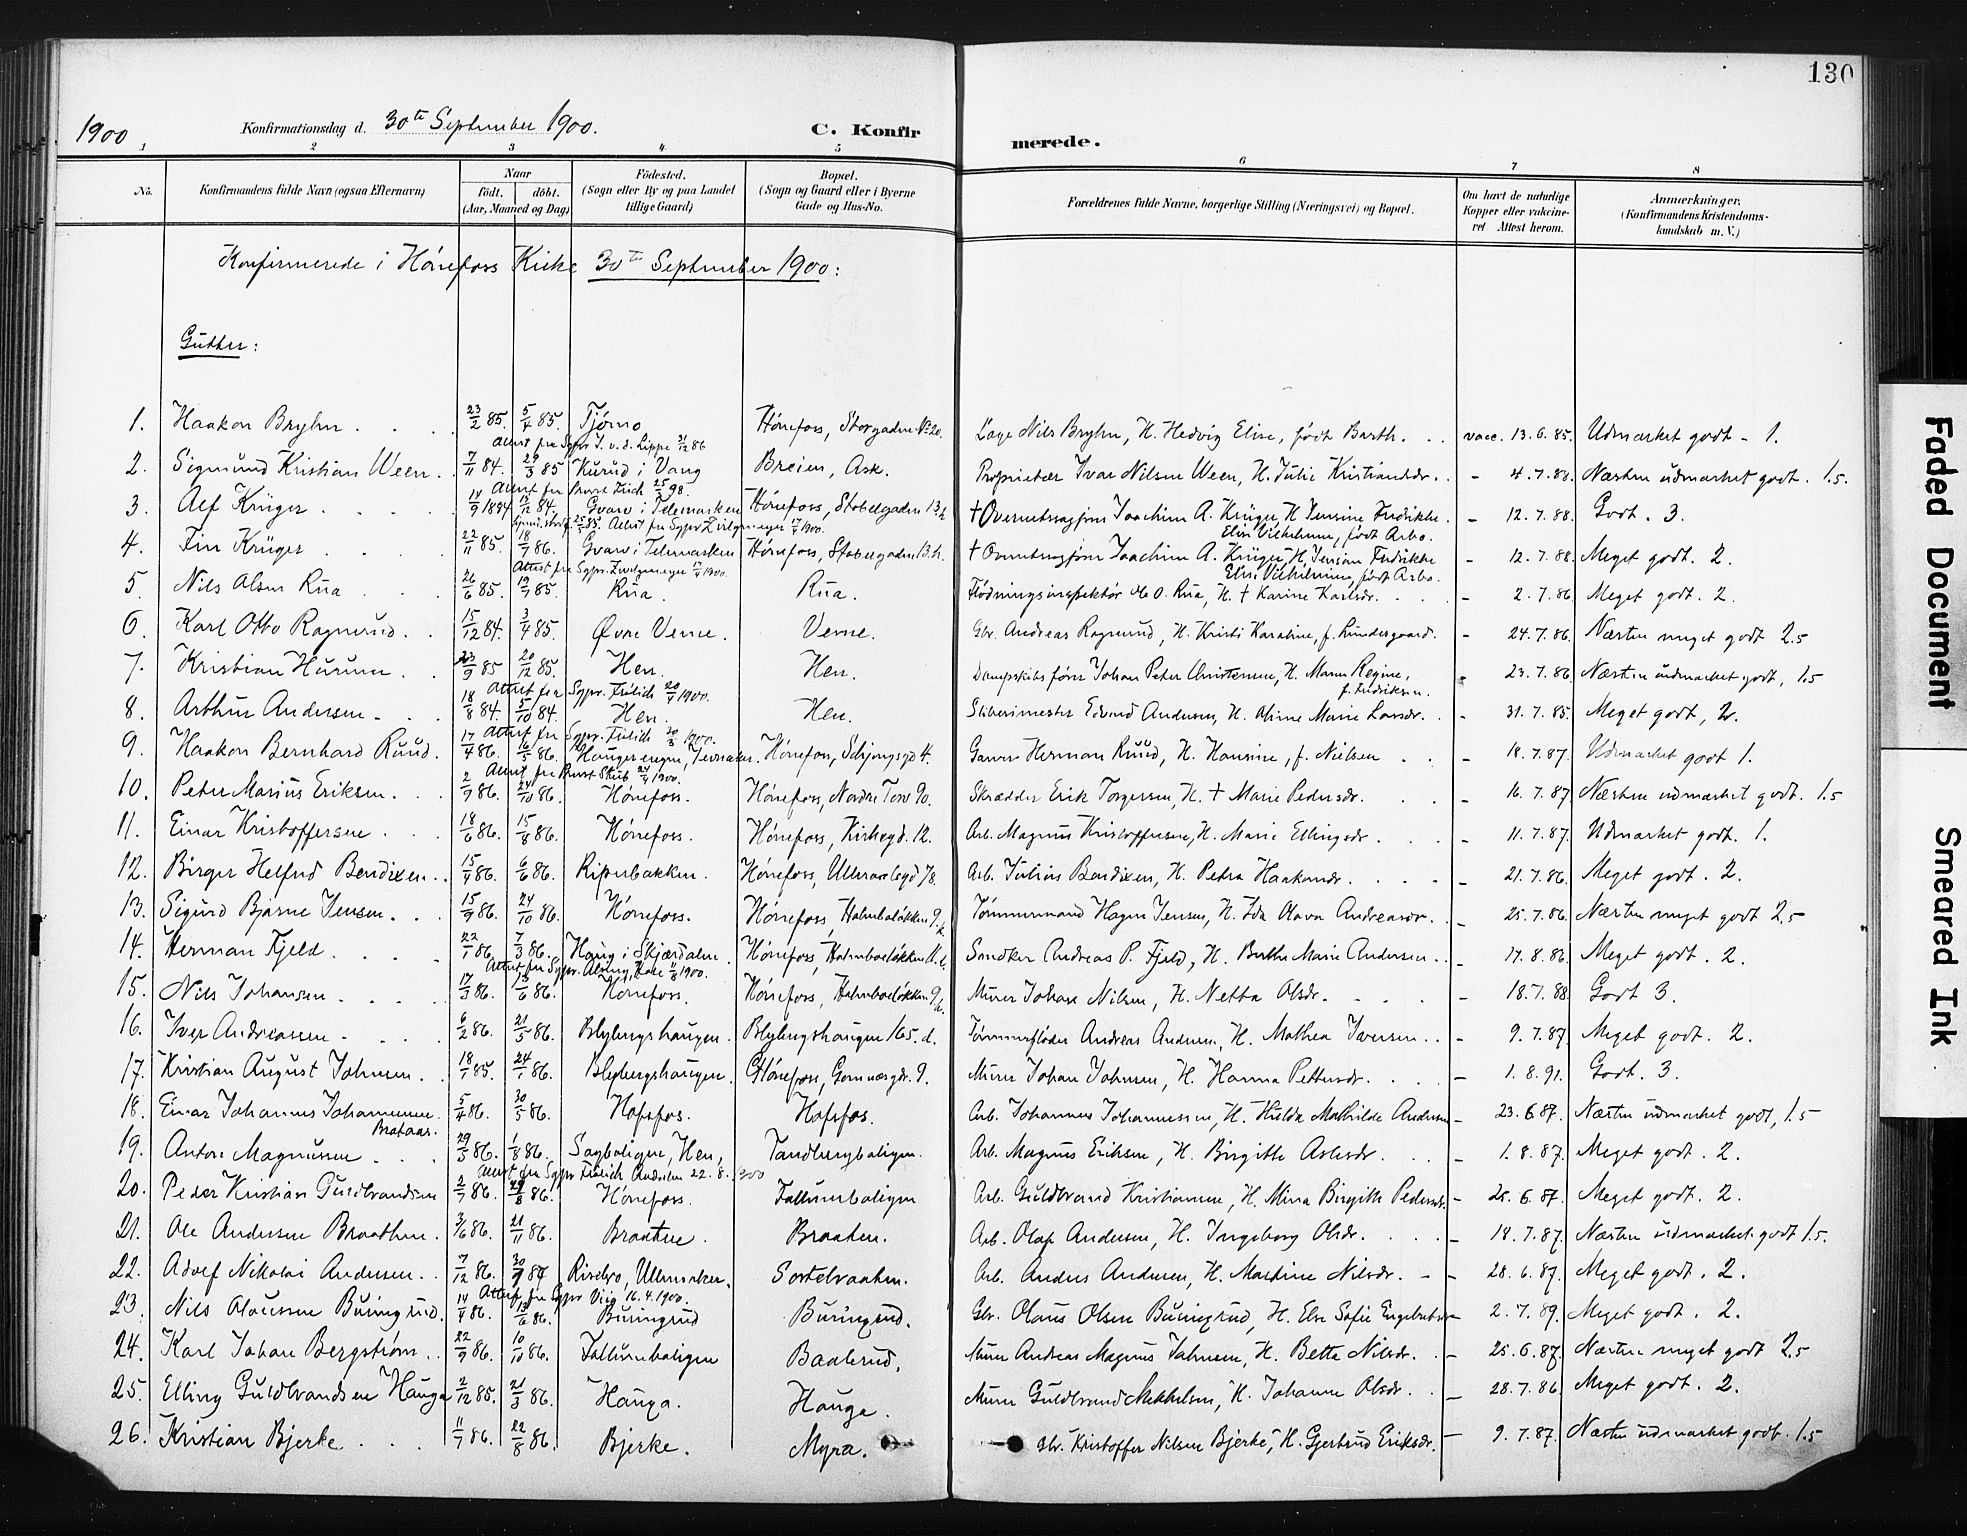 130
1900 Konfirmationsdag d. 30te September 1900. C. Konfirmerede.
1 2 3 4 5 6 7 8
No. Konfirmandens fulde Navn (ogsaa Efternavn) Naar født. døbt. (Aar, Maaned og Dag) Fødested. (Sogn eller By og paa Landet tillige Gaard) Bopæl. (Sogn og Gaard eller i Byerne Gade og Hus-No. Forældrenes fulde Navne, borgerlige Stilling (Næringsvei) og Bopæl. Om havt de naturlige Kopper eller vakcineret Attest herom. Anmerkninger. (Konfirmandens Kristendomskundskab m. V.)
Konfirmerede i Hønefoss Kirke 30te September 1900:
Gutter:
1. Haakon Bryhn 23/2 85. 5/4 85. Tjømo Hønefoss, Storgaden No 20. Nils Bryhn, H. Hedvig Elise, født Barth. vacc. 13.6.85. Udmærket godt - 1.
2. Sigmund Kristian Ween 7/11 84. 29/3 85 Kurud i Vang Breien, Ask. Proprietær Ivar Nilsen Ween, H. Julie Kristiansdr. - 4.7.88. Næsten udmærket godt. 1.5.
3. Alf Krüger 14/9 1884 Gvarv i Telemarken Hønefoss, Stabelgaden 13 h. † Overretssagfører Joachim A. Krüger, H. Jensine Fredrikke - 12.7.88. Godt. 3.
Elise Vilhelmine, født Arbo.
4. Finn Krüger 22/11 85. 18/7 86. Gvarv i Telemarken Hønefoss, Stabelgaden 13. h. † Overretssagfører Joachim A. Krüger, H. Jensine Fredrikke - 12.7.88. Meget godt. 2.
Elise Vilhelmine, født Arbo.
5. Nils Olsen Rua 26/6 85. 19/7 85. Rua. Rua. Flødningsinspektør Ole O. Rua, H. † Karine Karlsdr. - 2.7.86 Meget godt. 2.
6. Karl Otto Ragnerud. 15/12 84. 3/4 85. Øvre Verne. Verne. Gbr. Andreas Ragnerud, H. Kristi Karoline, f. Lundesgaard. - 24.7.86. Næsten meget godt 2.5
7. Kristian Hurum 23/9 85 20/12 85. Hen. Hen. Dampskibsfører Johan Peter Christensen, H. Maren Regine, f. Fredriksen. - 23.7.86. Næsten udmærket godt, 1.5
Attest fra Sgpr. Frölich 20/7 1900.
8. Arthur Andersen 18/8 84. 5/10 84. Hen. Hen. Sliberimester Edvard Andersen, H. Oline Marie Larsdr. - 31.7.85. Meget godt, 2.
9. Haakon Bernhard Ruud. 17/4 86. 16/5 86. Haugerengen, Jevnaker. Hønefoss, Schjongsgd 4. Garver Herman Ruud, H. Hansine, f. Nielsen - 18.7.87. Udmærket godt 1.
10. Peter Marius Eriksen. 2/9 86. 24/10 86. Hønefoss. Hønefoss, Nordre Torv 90. Skrædder Erik Torgersen, H. † Marie Pedersdr. - 16.7.87. Næsten udmærket godt. 1.5
11. Einar Kristoffersen 18/6 86. 15/8 86. Hønefoss. Hønefoss, Kirkegd. 12. Arb. Magnus Kristoffersen, H. Marie Ellingsdr. - 11.7.87. Udmærket godt. 1.
12. Birger Helfred Bendixen 15/4 86. 6/6 86. Riperbakken. Hønefoss, 78. Arb. Julius Bendixen, H. Petra Haakonsdr. - 21.7.86. Meget godt. 2.
13. Sigurd Bjarne Jensen. 15/9 86. 24/10 86. Hønefoss. Hønefoss, Holmboeløkken 9. Tømmermand Hagen Jensen, H. Ida Olava Andreasdr. - 25.7.86. Næsten meget godt 2.5
14. Herman Fjeld 22/1 86. 7/3 86. Haug i Skjærdalen Hønefoss, Holmboeløkken 11. Snedker Andreas P. Fjeld, H. Berthe Marie Andersen - 17.8.86. Meget godt. 2.
15. Nils Johansen 17/3 86. 13/6 86. Hønefoss. Hønefoss, Holmboeløkken 9. Murer Johan Nilsen, H. Netta Olsdr. - 18.7.88. Godt 3.
16. Iver Andreassen 6/2 86. 21/5 86. Blybergshaugen. Blybergshaugen 165.d. Tømmerfløder Andreas Andersen, H. Mathea Iversen - 9.7.87. Meget godt. 2.
17. Kristian August Johnsen. 18/1 85. 24/1 86. Blybergshaugen. Hønefoss, Gornæsgdr. 9. Murer Johan Johnsen, H. Hanna Pettersdr. - 1.8.91. Godt. 3.
18. Einar Johannes Johannessen Brataas. 5/4 86. 30/5 86. Hofsfos. Hofsfos. Arb. Johannes Johannessen, H. Hulda Mathilde Andersen - 23.6.87. Næsten udmærket godt, 1.5
19. Anton Magnussen 29/5 86. 1/8 86. Sagboligen, Hen, Tandbergboligen. Arb. Magnus Eriksen, H. Birgitte Aslesdr. - 1.8.87. Meget godt. 2.
20. Peder Kristian Guldbrandsen 2/7 86. 29/8 86. Hønefoss. Follumboligen Arb. Guldbrand Kristiansen, H. Mina Birgitte Pedersdr. - 25.6.87. Meget godt. 2.
21. Ole Andersen Braathen. 3/6 86. 21/11 86. Braaten. Braaten. Arb. Olaf Andersen, H. Ingeborg Olsdr. - 18.7.87. Næsten udmærket godt 1.5.
22. Adolf Nikolai Andersen. 7/12 86. Risebro, Ullensaker. Sortebraaten. Arb. Anders Andersen, H. Martine Nilsdr. - 28.6.87. Meget godt. 2.
23. Nils Olaussen Buingsrud. 14/4 86. 13/6 86. Buingsrud Buingsrud. Gbr. Olaus Olsen Buingsrud, H. Else Sofie Engebretsdr - 2.7.89. Meget godt. 2.
24. Karl Johan Bergstrøm. 22/9 86. 10/10 86. Follumboligen Baalerud. Murer Andreas Magnus Johnsen, H. Bette Nilsdr. - 25.6.87. Næsten meget godt 2.5
25. Elling Guldbrandsen Hauga 2/12 85. 21/3 86. Hauga. Hauga. Murer Guldbrand Mikkelsen, H. Johanne Olsdr. - 28.7.86. Meget godt. 2.
26. Kristian Bjerke 11/7 86. 22/8 86. Bjerke. Myra. Gbr. Kristoffer Nilsen Bjerke, H. Gjertrud Eriksdr. - 9.7.87. Næsten udmærket godt. 1.5
Faded Document
Smeared Ink